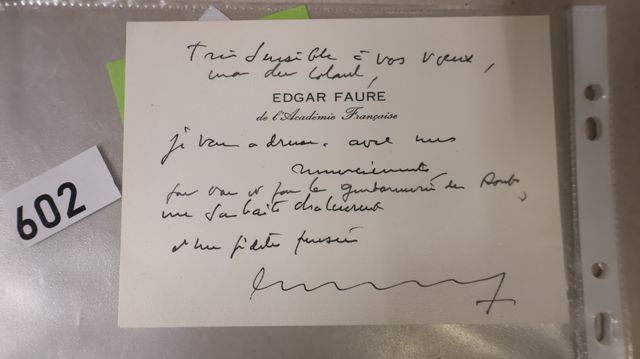 Très sensible à vos vœux,
mon cher Colonel,
EDGAR FAURE
de l'Académie Française
je vous adresse, avec mes
remerciements
pour vous et pour la gendarmerie du Doubs,
mes souhaits chaleureux
et ma fidèle pensée
602